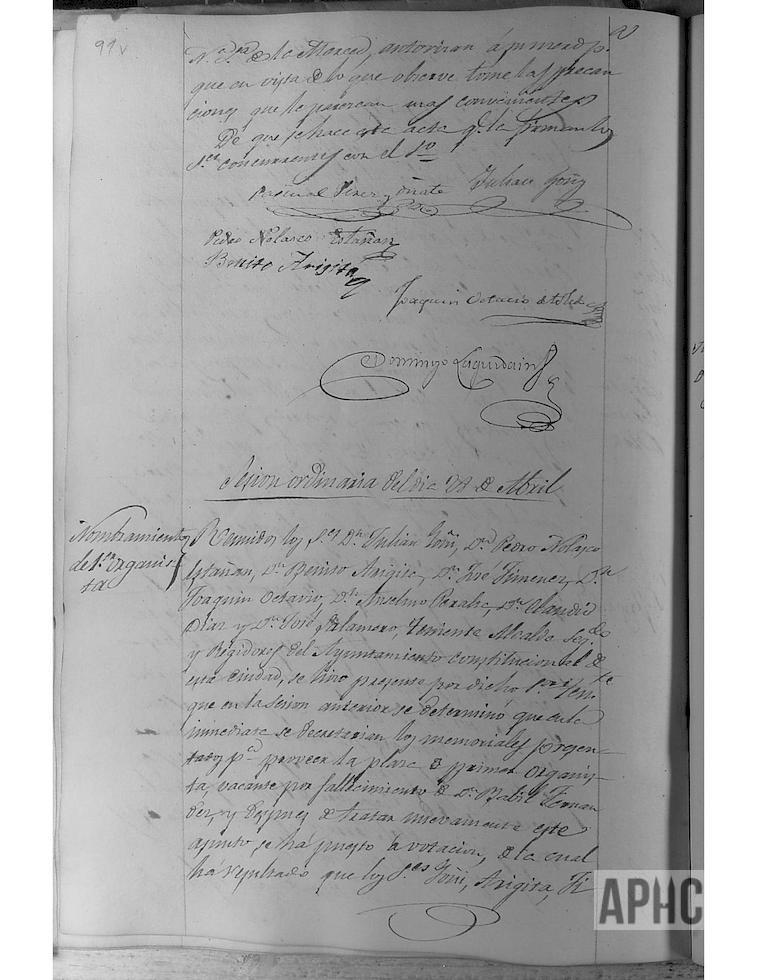 99v
N.ª S.ra de la Merced, autorizan á su merced p.ª
que en vista de lo que observe tome las precau
ciones que le parezcan mas convenientes
De que se hace este acta q.e la firman los
S.res concurrentes con el S.º
Pascual Perez y Oñate Julian Goñi
Pedro Nolasco Estañan
Benito Arigita
Joaquin Octavio de Toledo
Domingo Laguardain
Sesion ordinaria del dia 28 de Abril
Nombramiento
de 1.er organis
ta
Reunidos los S.res D.n Julian Goñi, D.n Pedro Nolasco
Estañan, D.n Benito Arigita, D.n José Jimenez, D.n
Joaquin Octavio, D.n Anselmo Peralta, D.n Claudio
Diaz y D.n José Salamero, Teniente Alcalde Seg.do
y Regidores del Ayuntamiento constitucional de
esta ciudad, se hizo presente por dicho S.or Ten.te
que en la sesion anterior se determinó que en la
inmediata se decretarian los memoriales presen-
tados p.ª proveer la plaza de primer organis-
ta, vacante por fallecimiento de D.n Babil Fernan
dez, y despues de tratar nuevamente este
asunto, se há puesto á votacion, de la cual
há resultado que los S.res Goñi, Arigita, Ji
APHC